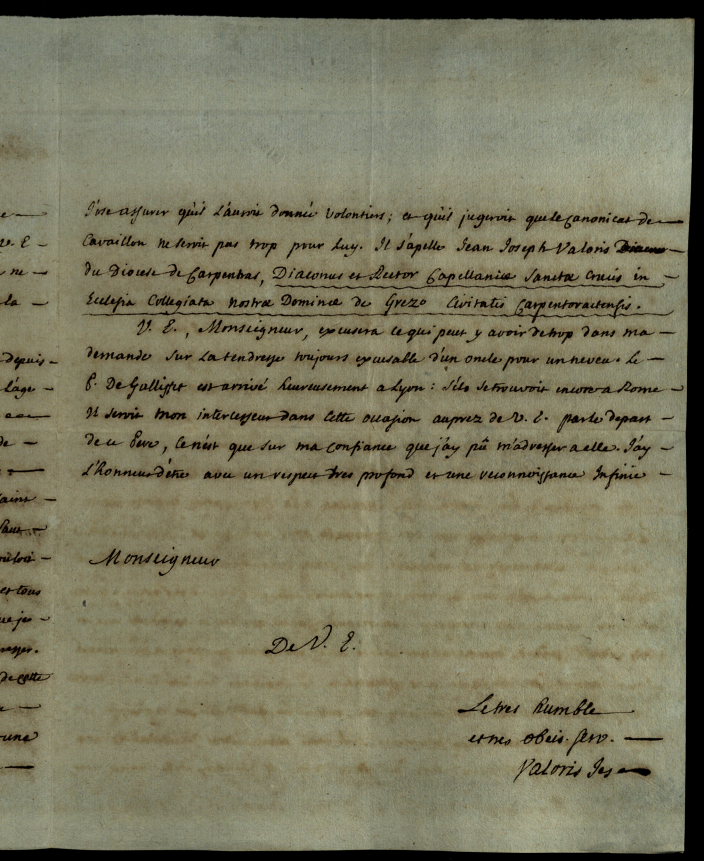 J'ose assurer qu'il l'auroit donnée volontiers; et qu'il jugeroit que le canonicat de
Cavaillon ne seroit pas trop pour luy. Il s'apelle Jean Joseph Valoris
du Diocese de Carpentras, Diaconus et Rector Capellaniæ Sanctæ Crucis in
Ecclesia Collegiata nostræ Dominæ de Grezo Civitatis Carpentoractensis.
V. E., Monseigneur, excusera ce qui peut y avoir de trop dans ma
demande sur la tendresse toujours excusable d'un oncle pour un neveu. Le
P. De Galliffet est arrivé heureusement a Lyon: s'il se trouvoit encore a Rome
Il seroit mon intercesseur dans cette occasion auprez de V. E. par le depart
de ce Pere, ce n'est que sur ma confiance que j'ay pû m'adresser a elle. J'ay
L'Honneur d'être avec un respect tres profond et une reconnoissance Infinie
Monseigneur
De V. E.
Le tres humble
et tres obeis. serv.
Valoris Jes
e
V. E
ne
la
depuis
l'âge
de
saint
et tous
que je
de cette
une